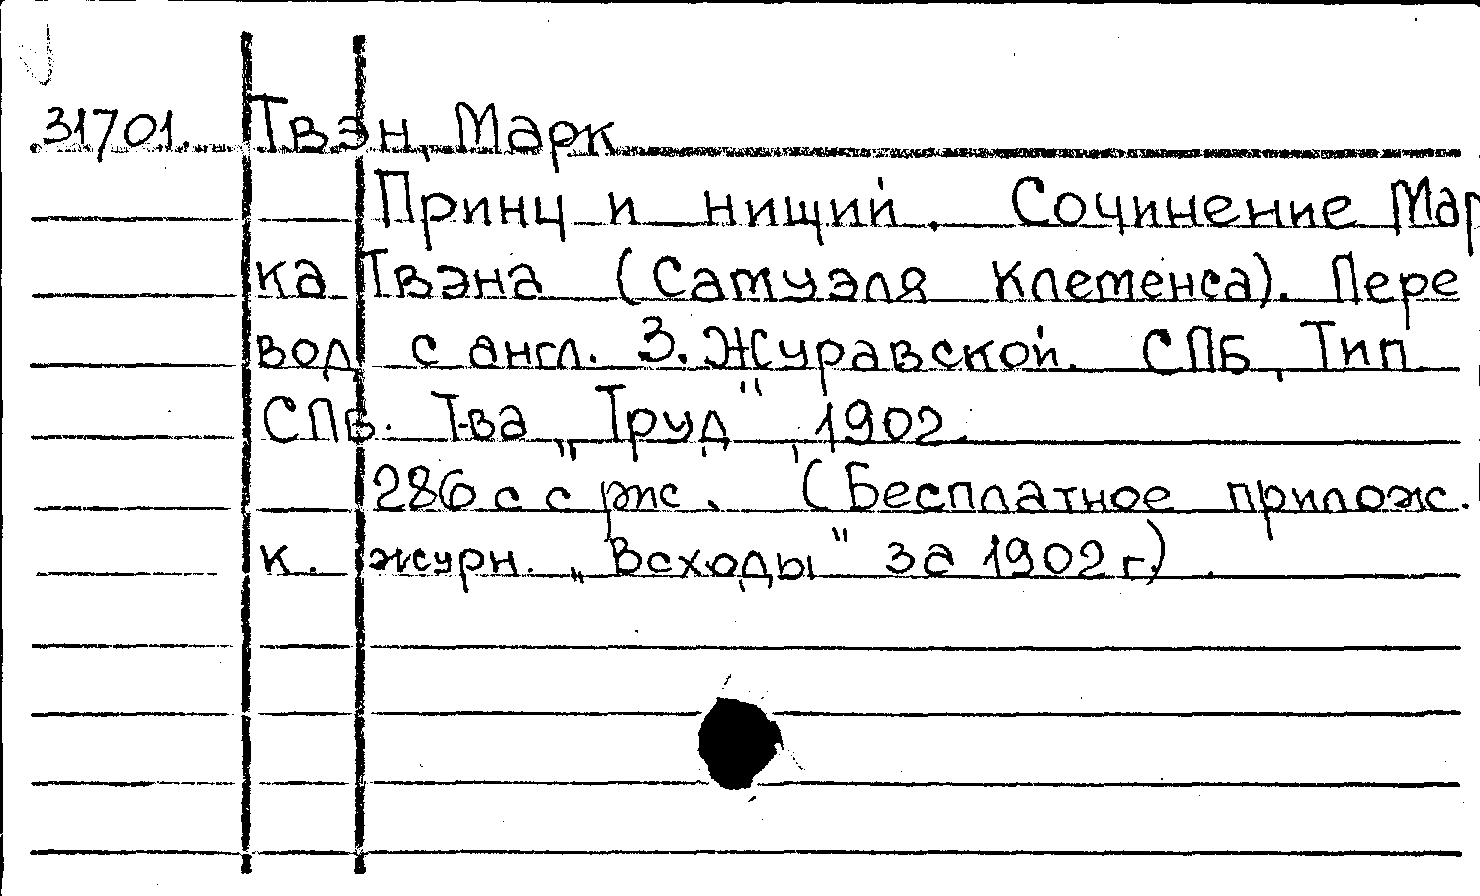 31701. Твэн, Марк
Принц и нищий. Сочинение Мар
ка Твэна (Самуэля Клеменса). Пере
вод с англ. З. Журавской. СПБ, Тип.
СПБ. Т-ва „Труд", 1902.
286 с с рис. (Бесплатное прилож.
к. журн. „Всходы" за 1902 г.).